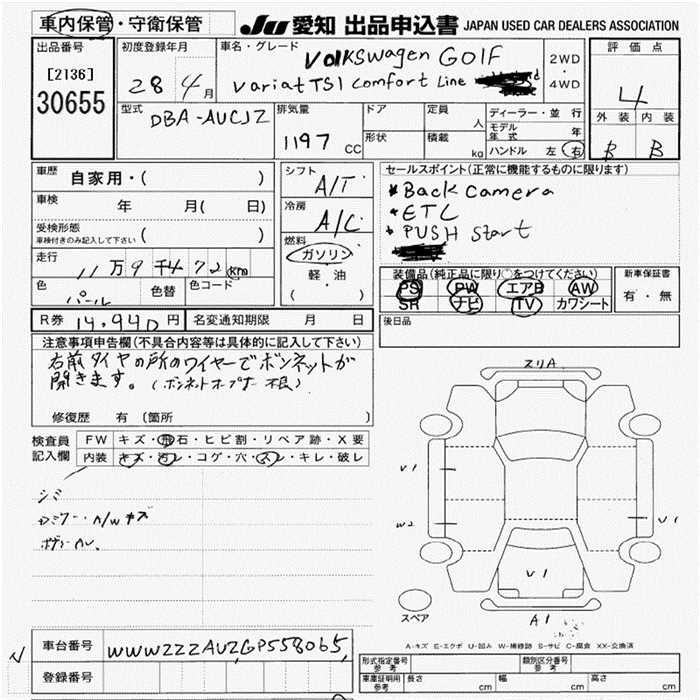 車内保管・守衛保管
JU 愛知 出品申込書 JAPAN USED CAR DEALERS ASSOCIATION
出品番号
[2136]
30655
初度登録年月
28 4月
車名・グレード
Volkswagen GOLF
Variat TSI Comfort Line
2WD
・
4WD
評価点
4
外装 内装
B B
型式
DBA-AUCJZ
排気量
1197 CC
ドア
形状
定員 人
積載 kg
ディーラー・並行
モデル年式 年
ハンドル 左 右
車歴
自家用・( )
車検
年 月( 日)
受検形態
車検付きのみ記入して下さい ( )
走行
11万9千472km
色
パール
色替
色コード
シフト
A/T
冷房
A/C
燃料
ガソリン
軽・油
( )
セールスポイント(正常に機能するものに限ります)
*Back camera
*ETC
*PUSH start
装備品(純正品に限り○をつけてください)
PS PW エアB AW
SR ナビ TV カワシート
新車保証書
有・無
R券 14,940円 名変通知期限 月 日
後日品
注意事項申告欄(不具合内容等は具体的に記入して下さい)
右前タイヤの所のワイヤーでボンネットが
開きます。
修復歴 有 (箇所 )
検査員
記入欄
FW キズ・飛石・ヒビ割・リペア跡・X要
内装 キズ・汚レ・コゲ・穴・スレ・キレ・破レ
シミ
A/Wキズ
スリA
V1
W2
U1
V1
A1
スペア
A-キズ E-エクボ U-凹み W-補修跡 S-サビ C-腐食 XX-交換済
車台番号 WWWZZZAUZGP558065
登録番号
形式指定番号
参考
類別区分番号
参考
車庫証明用
参考
長さ cm 幅 cm 高さ cm